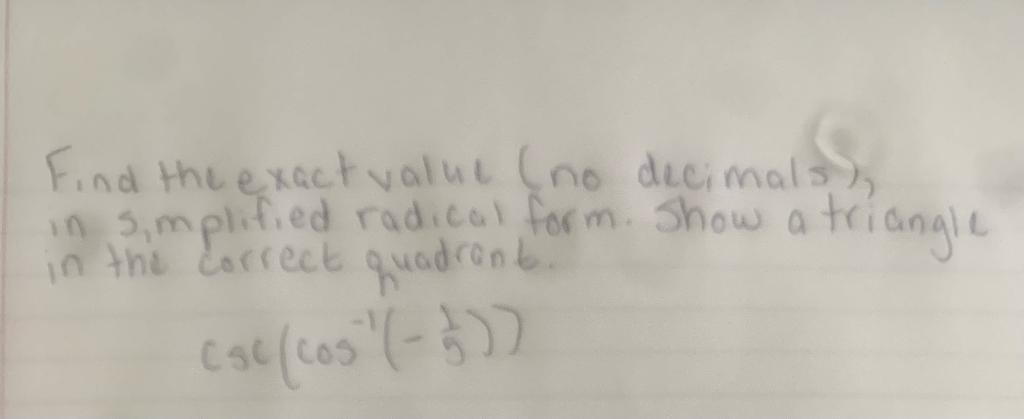 Find the exact value (no decimals),
in simplified radical form. Show a triangle
in the correct quadrant.
csc(cos⁻¹(-1/5))